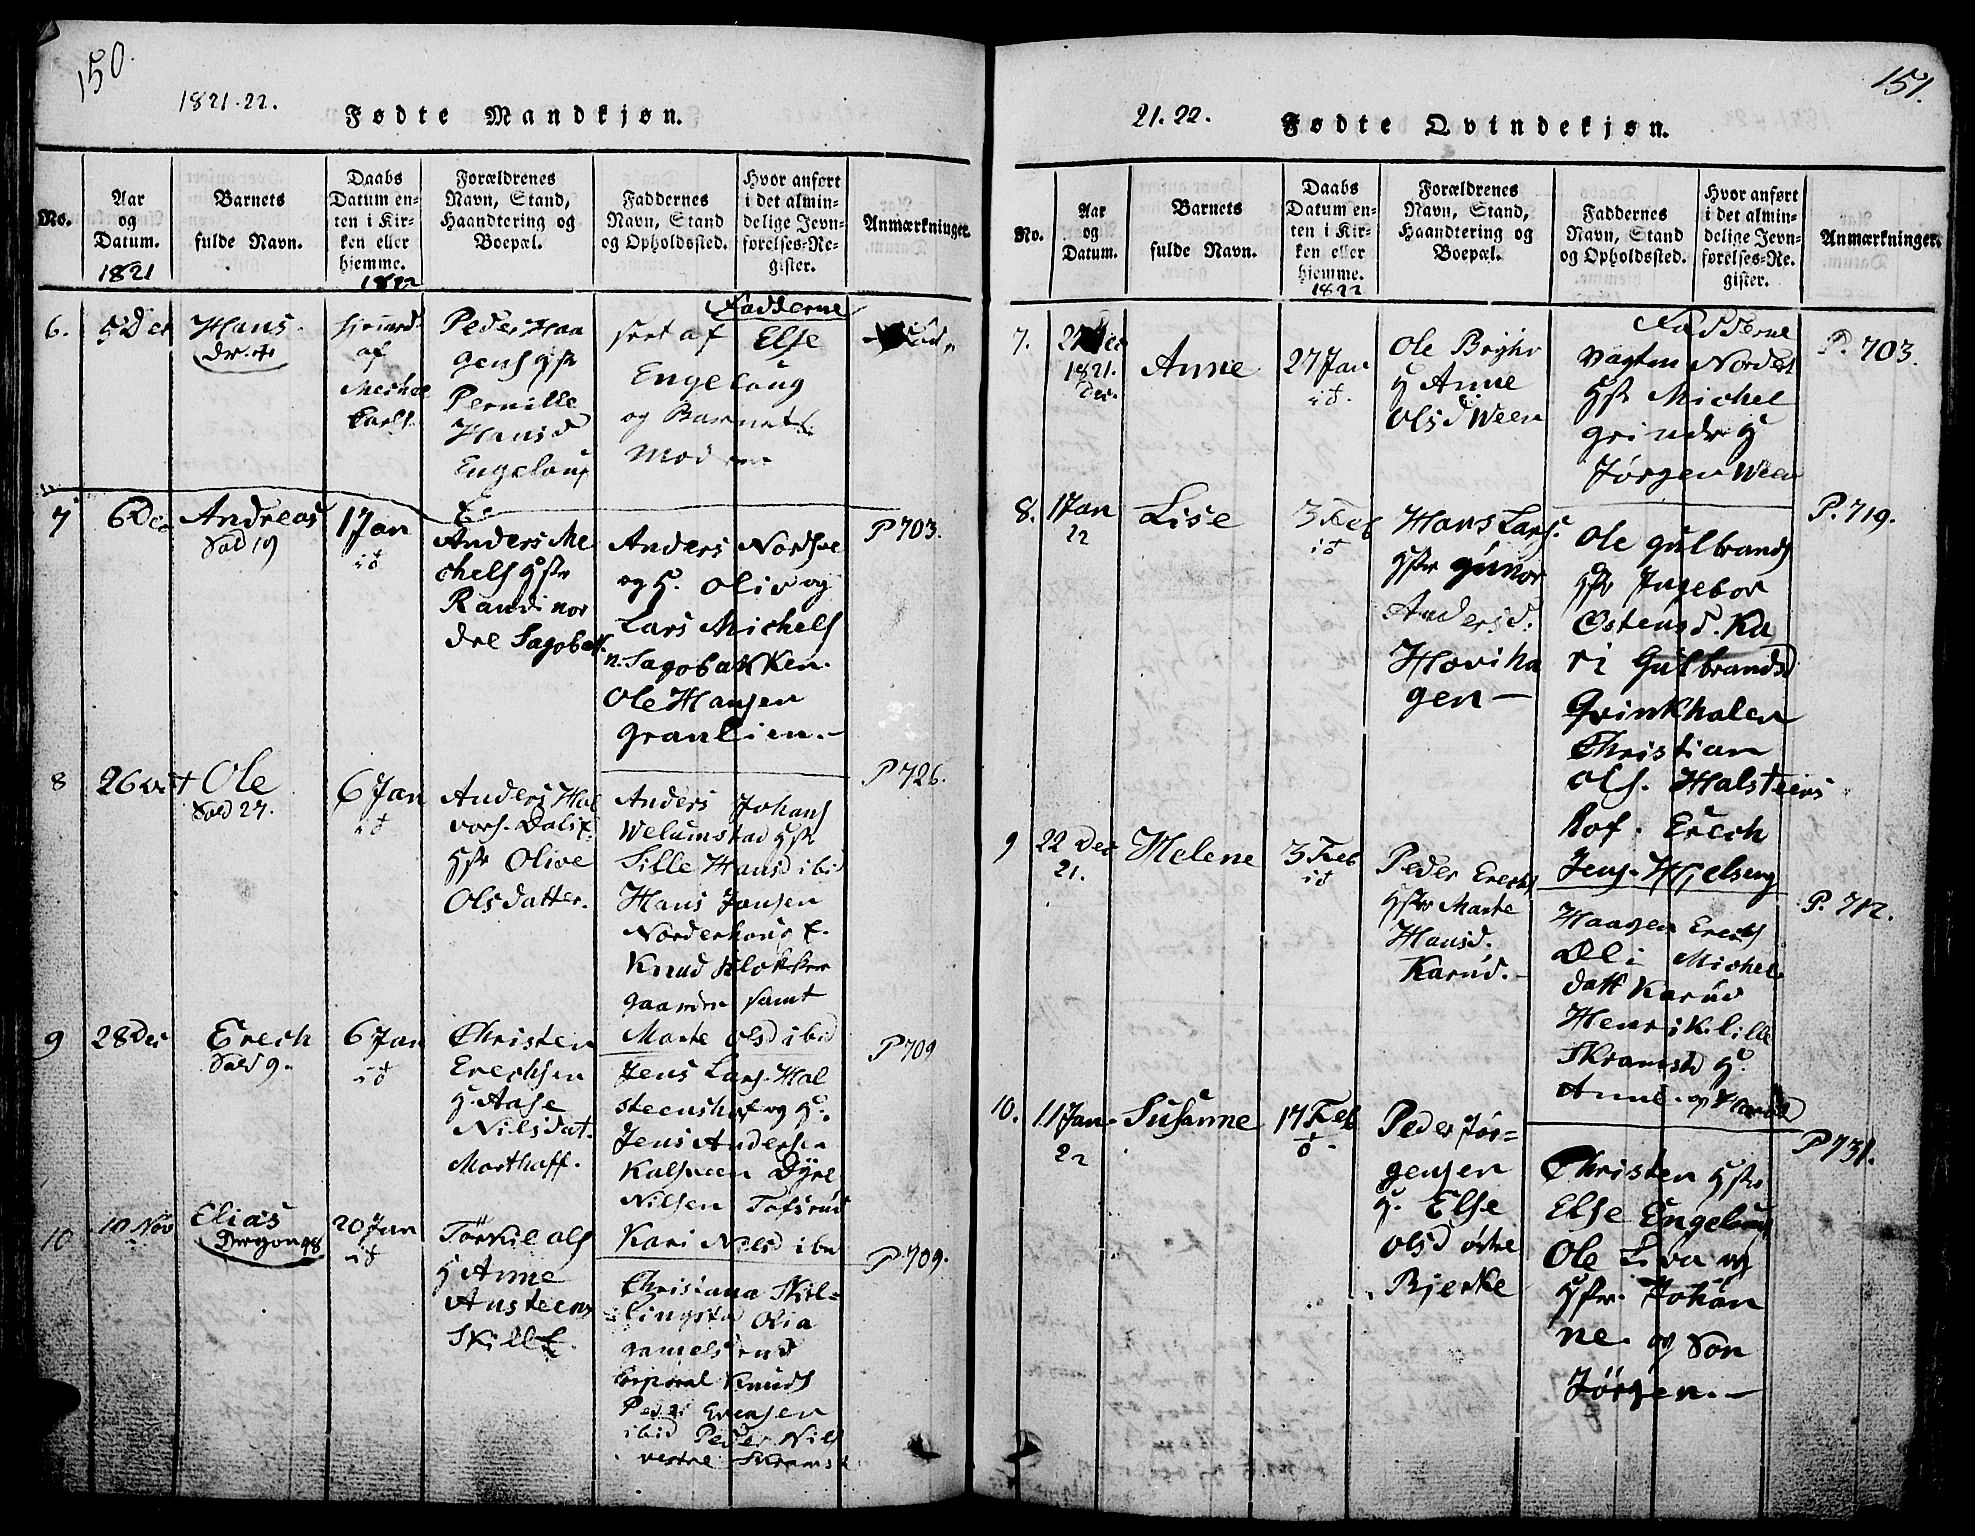 150.
1821-22.
Fødte Mandkjøn.
No.
Aar
og
Datum.
1821
Barnets
fulde Navn.
Daabs
Datum en-
ten i Kir-
ken eller
hjemme.
1822
Forældrenes
Navn, Stand,
Haandtering og
Boepæl.
Faddernes
Navn, Stand
og Opholdssted.
Hvor anført
i det almin-
delige Jevn-
førelses-Re-
gister.
Anmærkninger.
6.
5 Dec
Hans
hjemmed.
af
Michel
Carls.
Peder Haa
gens Hstr
Pernille
Hansd
Engeloug
Fadderne
sort af Else
Engeloug
og Barnets
Moder
7
6 Dec
Andreas
1 Jan
Anders Me
chels Hstr
Randi nor
dre Sagobak
Anders Nordsve
og H. Oliv og
Lars Michels
n. Sagobakken.
Ole Hansen
Granlien.-
P 703.
8
26 oct
Ole
Døbd 27.
6 Jan
Anders Hal
vors. Dalie.
Hstr Olive
Olsdatter.
Anders Johans
Welumstad Hstr
Sille Hansd ibid
Hans Jonsen
Norderhoug E.
Knud Klokker
gaarden samt
Marte Olsd ibid
P 726.
9
28 Dec
Erech
Døbd 9.
6 Jan
Christen
Erechsen
H. Aase
Nilsdat.
Morthoff.
Jens Lars. Hal
steenshof og H.
Jens Andersen
Kalsveen Dyre
Nilsen Tofsrud
Kari Nilsd ibid
P 709
10
10 Nov
Elias
20 Jan
Torkil Ols
H Anne
Austeens
Skille.
Christiana Skil-
lingstad Olia
Corporal Knuds
Peder Evensen
ibid Peder Nils
vestre Skramst
P 709.
151.
21. 22.
Fødte Qvindekjøn.
No.
Aar
og
Datum.
Barnets
fulde Navn.
Daabs
Datum en-
ten i Kir-
ken eller
hjemme.
1822
Forældrenes
Navn, Stand,
Haandtering og
Boepæl.
Faddernes
Navn, Stand
og Opholdssted.
Hvor anført
i det almin-
delige Jevn-
førelses-Re-
gister.
Anmærkninger.
7.
1821.
Dec.
Anne
27 Jan
Ole
H Anne
Olsd Ween
Fadderne
Nordst
Hstr Michel
Grinder H
Jørgen Ween
P. 703.
8.
1 Jan
22
Lise
3 Feb
Hans Lars.
Hstr Gunor
Andersd.
Hoviha
gen-
Ole Gulbrands
Hstr Ingebor
Ostensd. Ka
ri Gulbrandsd
Grinkholen
Christian
Ols. Halsteens
hof. Erech
Jens. Hjelseng
P. 719.
9
22 Dec
21.
Helene
3 Feb
Peder Erechs
Hstr Marte
Hansd.
Karud.-
Haagen Erechs
Oli Michels
datt Karud
Henrik lille
Skramstd H.
Anne og
P. 712.
10.
11 Jan.
22
Susanne
17 Feb
Peder Jør=
gensen
H. Else
Olsd østre
Bjerke
Christen Hstr
Else Engeloug
Ole Lova og
Hstr. Johan
ne og Søn
Jørgen.-
P 731.